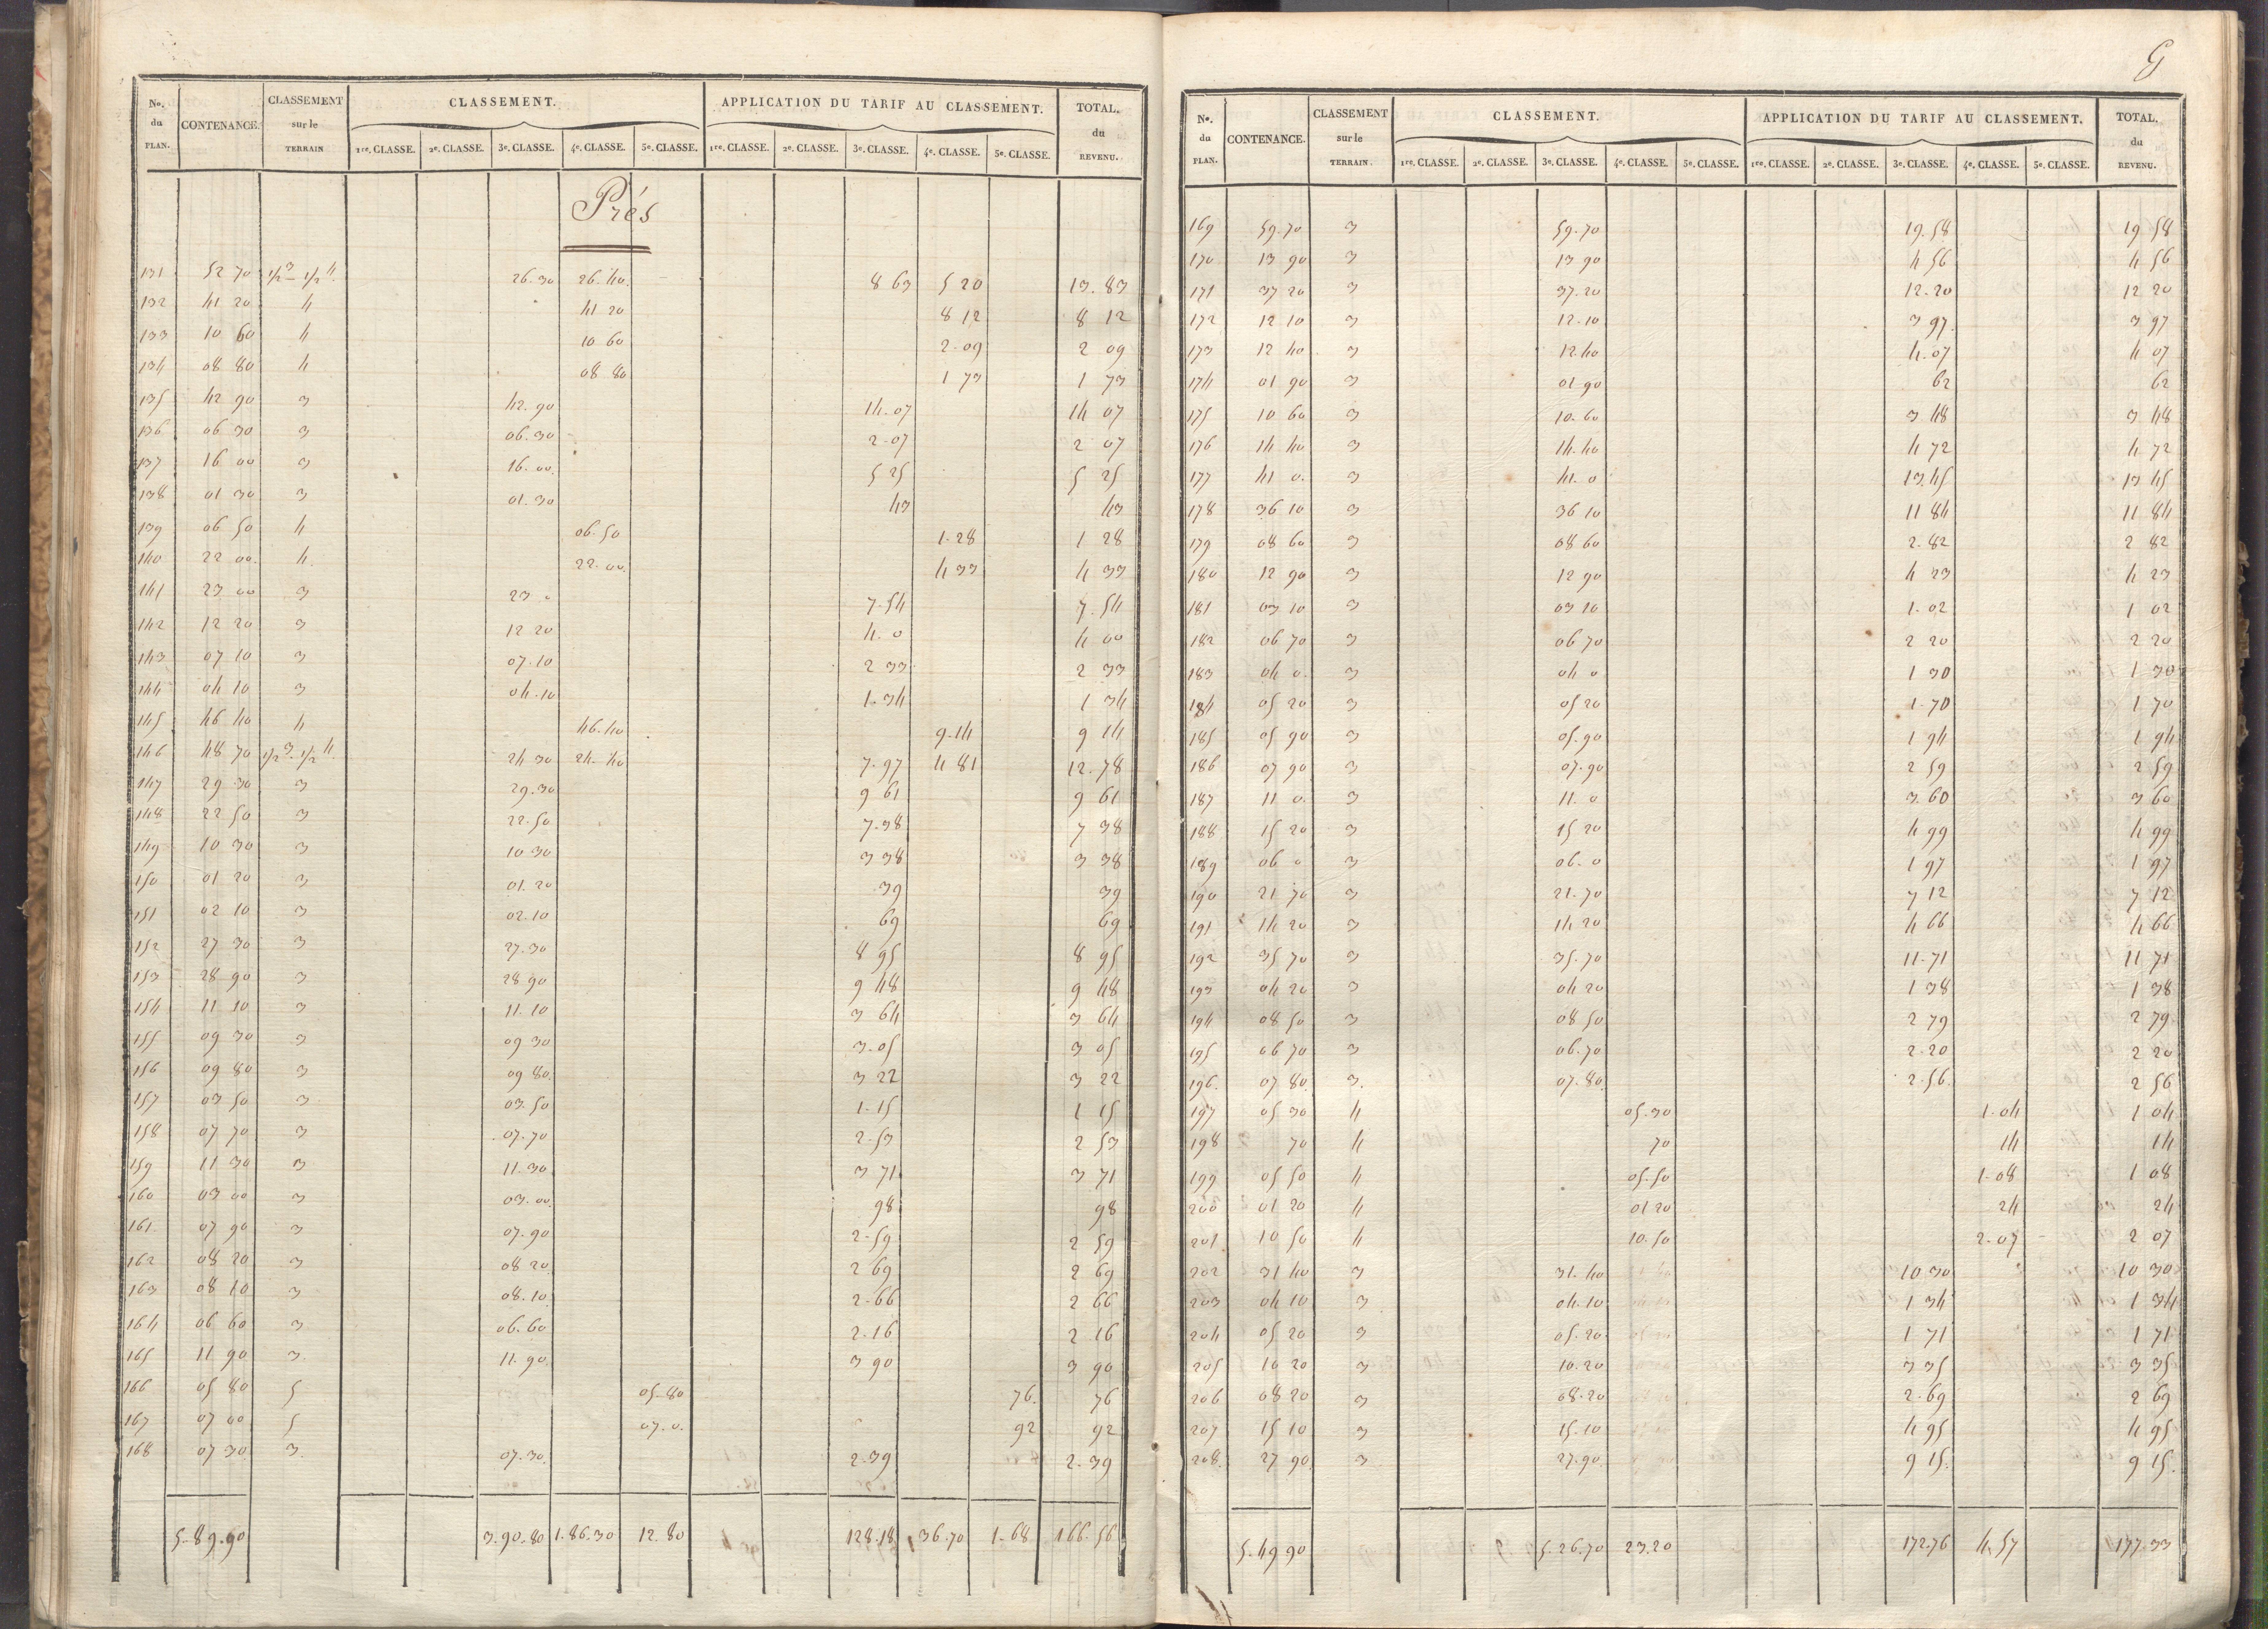 No. du PLAN. CONTENANCE. CLASSEMENT sur le TERRAIN CLASSEMENT. APPLICATION DU TARIF AU CLASSEMENT. TOTAL. du REVENU.
1re. CLASSE. 2e. CLASSE. 3e. CLASSE. 4e. CLASSE. 5e. CLASSE. 1re. CLASSE. 2e. CLASSE. 3e. CLASSE. 4e. CLASSE. 5e. CLASSE.
Prés
131 52 70 1/2 3 - 1/2 4 26.30 26.40 8 63 5 20 13.83
132 41 20 4 41 20 8 12 8 12
133 10 60 4 10 60 2-09 2 09
134 08 80 4 08 80 1 73 1 73
135 42 90 3 42.90 14.07 14 07
136 06 30 3 06.30 2-07 2 07
137 16 00 3 16.00 5 25 5 25
138 01 30 3 01.30 43 43
139 06 50 4 06.50 1-28 1 28
140 22 00 4 22.00 4 33 4 33
141 23 00 3 23 0 7-54 7.54
142 12 20 3 12 20 4.0 4 00
143 07 10 3 07.10 2 33 2 33
144 04 10 3 04.10 1-34 1 34
145 46 40 4 46.40 9-14 9 14
146 48 70 1/2 3 - 1/2 4 24 30 24.40 7-97 4 81 12.78
147 29 30 3 29.30 9 61 9 61
148 22 50 3 22.50 7-38 7 38
149 10 30 3 10 30 3 38 3 38
150 01 20 3 01.20 39 39
151 02 10 3 02.10 69 69
152 27 30 3 27.30 8 95 8 95
153 28 90 3 28 90 9 48 9 48
154 11 10 3 11.10 3 64 3 64
155 09 30 3 09 30 3-05 3 05
156 09 80 3 09 80 3 22 3 22
157 03 50 3 03.50 1-15 1 15
158 07 70 3 07.70 2-53 2 53
159 11 30 3 11.30 3 71 3 71
160 03 00 3 03.00 98 98
161 07 90 3 07.90 2-59 2 59
162 08 20 3 08 20 2 69 2 69
163 08 10 3 08.10 2-66 2 66
164 06 60 3 06.60 2-16 2 16
165 11 90 3 11.90 3 90 3 90
166 05 80 5 05-80 76 76
167 07 00 5 07.0 92 92
168 07 30 3 07.30 2-39 2.39
5.89.90 3.90.80 1.86.30 12.80 128.18 36.70 1-68 166.56
G
No. du PLAN. CONTENANCE. CLASSEMENT sur le TERRAIN. CLASSEMENT. APPLICATION DU TARIF AU CLASSEMENT. TOTAL. du REVENU.
1re. CLASSE. 2e. CLASSE. 3e. CLASSE. 4e. CLASSE. 5e. CLASSE. 1re. CLASSE. 2e. CLASSE. 3e. CLASSE. 4e. CLASSE. 5e. CLASSE.
169 59.70 3 59.70 19.58 19 58
170 13 90 3 13 90 4 56 4 56
171 37 20 3 37.20 12-20 12 20
172 12 10 3 12-10 3 97 3 97
173 12 40 3 12.40 4-07 4 07
174 01 90 3 01 90 62 62
175 10 60 3 10.60 3 48 3 48
176 14 40 3 14.40 4 72 4 72
177 41 0 3 41.0 13.45 13 45
178 36 10 3 36 10 11 84 11 84
179 08 60 3 08 60 2-82 2 82
180 12 90 3 12 90 4 23 4 23
181 03 10 3 03 10 1-02 1 02
182 06 70 3 06 70 2 20 2 20
183 04 0 3 04 0 1 30 1 30
184 05 20 3 05 20 1-70 1 70
185 05 90 3 05.90 1 94 1 94
186 07 90 3 07.90 2 59 2 59
187 11 0 3 11.0 3.60 3 60
188 15 20 3 15 20 4 99 4 99
189 06 0 3 06.0 1 97 1 97
190 21 70 3 21.70 7 12 7 12
191 14 20 3 14 20 4 66 4 66
192 35 70 3 35.70 11-71 11 71
193 04 20 3 04 20 1 38 1 38
194 08 50 3 08 50 2 79 2 79
195 06 70 3 06.70 2-20 2 20
196 07 80 3 07.80 2-56 2 56
197 05 30 4 05.30 1-04 1 04
198 70 4 70 14 14
199 05 50 4 05-50 1-08 1 08
200 01 20 4 01 20 24 24
201 10 50 4 10.50 2-07 2 07
202 31 40 3 31.40 10 30 10 30
203 04 10 3 04.10 1 34 1 34
204 05 20 3 05.20 1 71 1 71
205 10 20 3 10.20 3 35 3 35
206 08 20 3 08-20 2-69 2 69
207 15 10 3 15.10 4 95 4 95
208 27 90 3 27.90 9 15 9 15
5.49 90 5.26.70 23.20 172.76 4.57 177.33